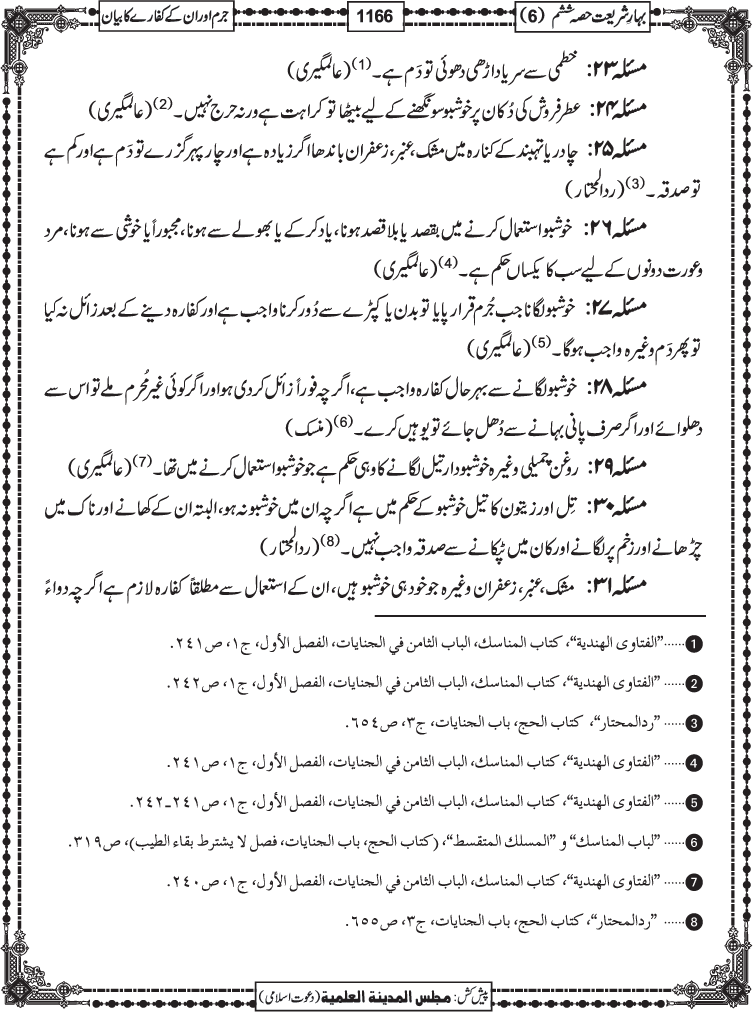 بہارِ شریعت حصہ ششم (6)
1166
جرم اور ان کے کفارے کا بیان
مسئلہ ۲۳: خطمی سے سر یا داڑھی دھوئی تو دَم ہے۔(1) (عالمگیری)
مسئلہ ۲۴: عطر فروش کی دُکان پر خوشبو سونگھنے کے لیے بیٹھا تو کراہت ہے ورنہ حرج نہیں۔(2) (عالمگیری)
مسئلہ ۲۵: چادر یا تہبند کے کنارہ میں مشک، عنبر، زعفران باندھا اگر زیادہ ہے اور چار پہر گزرے تو دَم ہے اور کم ہے
تو صدقہ۔(3) (ردالمحتار)
مسئلہ ۲۶: خوشبو استعمال کرنے میں بقصد یا بلا قصد ہونا، یاد کرکے یا بھولے سے ہونا، مجبوراً یا خوشی سے ہونا، مرد
و عورت دونوں کے لیے سب کا یکساں حکم ہے۔(4) (عالمگیری)
مسئلہ ۲۷: خوشبو لگانا جب جُرم قرار پایا تو بدن یا کپڑے سے دُور کرنا واجب ہے اور کفارہ دینے کے بعد زائل نہ کیا
تو پھر دَم وغیرہ واجب ہوگا۔(5) (عالمگیری)
مسئلہ ۲۸: خوشبو لگانے سے بہرحال کفارہ واجب ہے، اگرچہ فوراً زائل کردی ہو اور اگر کوئی غیر مُحرم ملے تو اس سے
دھلوائے اور اگر صرف پانی بہانے سے دُھل جائے تو یوہیں کرے۔(6) (منسک)
مسئلہ ۲۹: روغن چمیلی وغیرہ خوشبودار تیل لگانے کا وہی حکم ہے جو خوشبو استعمال کرنے میں تھا۔(7) (عالمگیری)
مسئلہ ۳۰: تِل اور زیتون کا تیل خوشبو کے حکم میں ہے اگرچہ ان میں خوشبو نہ ہو، البتہ ان کے کھانے اور ناک میں
چڑھانے اور زخم پر لگانے اور کان میں ٹپکانے سے صدقہ واجب نہیں۔(8) (ردالمحتار)
مسئلہ ۳۱: مشک، عنبر، زعفران وغیرہ جو خود ہی خوشبو ہیں، ان کے استعمال سے مطلقاً کفارہ لازم ہے اگرچہ دواءً
1......"الفتاوى الهندية"، كتاب المناسك، الباب الثامن في الجنايات، الفصل الأول، ج١، ص٢٤١.
2...... "الفتاوى الهندية"، كتاب المناسك، الباب الثامن في الجنايات، الفصل الأول، ج١، ص٢٤٢.
3...... "ردالمحتار"، كتاب الحج، باب الجنايات، ج٣، ص٦٥٤.
4...... "الفتاوى الهندية"، كتاب المناسك، الباب الثامن في الجنايات، الفصل الأول، ج١، ص٢٤١.
5...... "الفتاوى الهندية"، كتاب المناسك، الباب الثامن في الجنايات، الفصل الأول، ج١، ص٢٤١ـ٢٤٢.
6...... "لباب المناسك" و "المسلك المتقسط"، (كتاب الحج، باب الجنايات، فصل لا يشترط بقاء الطيب)، ص٣١٩.
7...... "الفتاوى الهندية"، كتاب المناسك، الباب الثامن في الجنايات، الفصل الأول، ج١، ص٢٤٠.
8...... "ردالمحتار"، كتاب الحج، باب الجنايات، ج٣، ص٦٥٥.
پیش کش: مجلس المدينة العلمية (دعوت اسلامی)